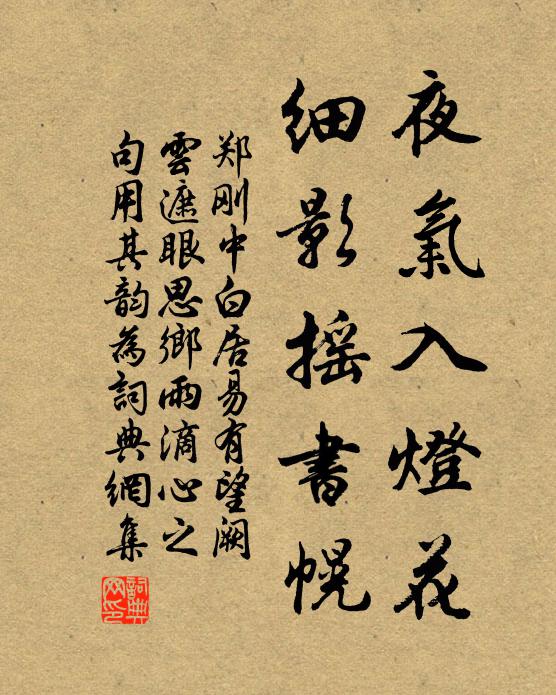 夜氣入燈花
細影摇書幌
郑刚中白居易有望阙
雲遮眼思鄉雨滴心之
句用其韵為詞典網集
詞典
网印